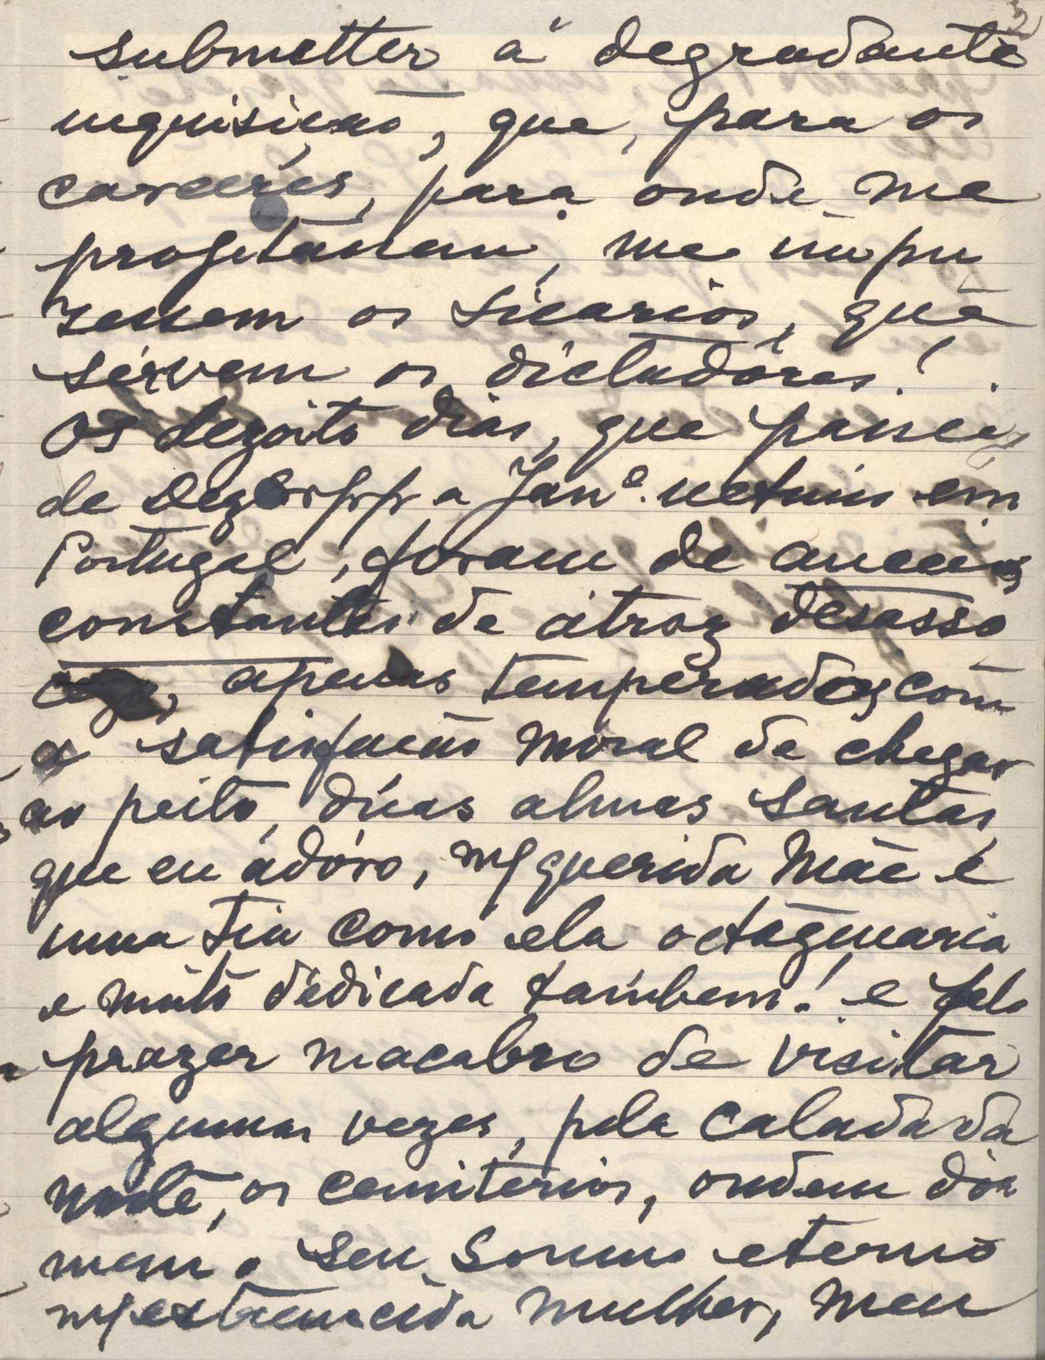 2
submetter á degradante
inquisição, que, para os
carceres, para onde me
progetaram, me impu
zessem os sicarios, que
servem os dictadores!
Os dezoito dias, que passei
de Dezbrº p.p. a Janº netuis em
Portugal, foram de anceios
constantes de atroz desasso
cego, apenas temperados com
a satisfação moral de chegar
ao peito, duas almas santas
que eu adóro, mª querida Mãe e
uma tia como ela octagenaria
e muito dedicada tambem! e pelo
prazer macabro de visitar
algumas vezes, pela calada da
noite, os cemiterios, ondem dor
mem o seu somno eterno
mª extremecida mulher, meu